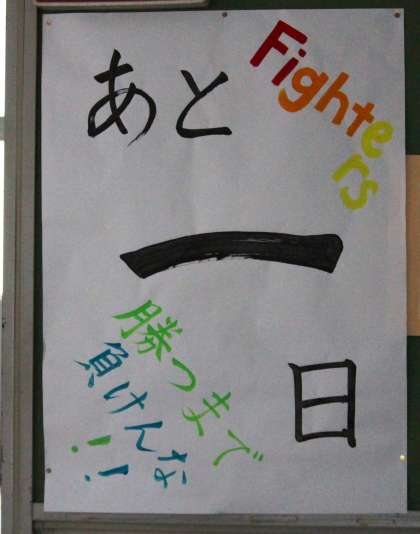 あと
Fighters
一
日
勝つまで
負けんな!!